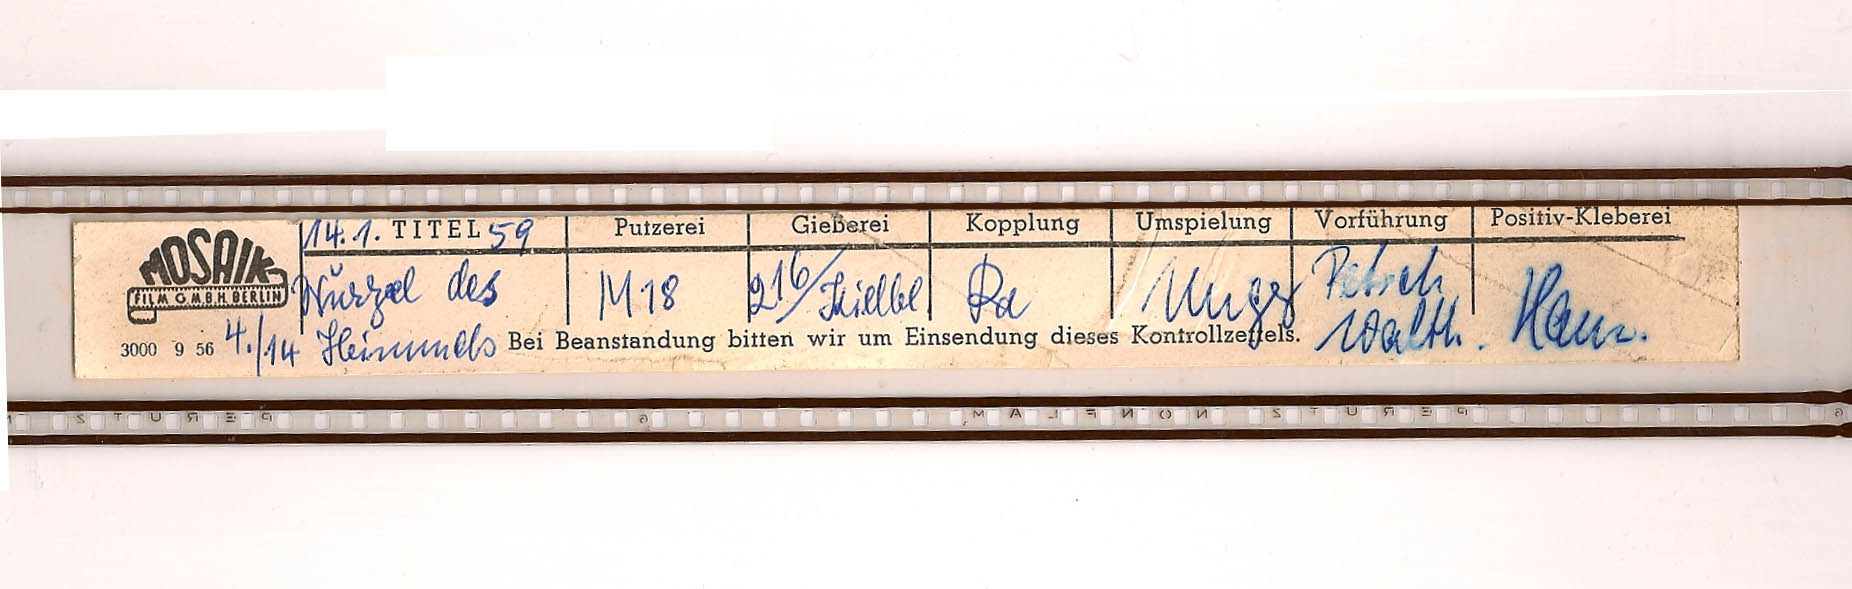 MOSAIK
FILM G.M.B.H. BERLIN
3000 9 56
4./14
14.1. TITEL 59
Würzel des
Himmels
Putzerei
M 18
Gießerei
216/
Kopplung
Ra
Umspielung
Vorführung
Petsch
Walth.
Positiv-Kleberei
Bei Beanstandung bitten wir um Einsendung dieses Kontrollzettels.
PERUTZ
6
PERUTZ NONFLAM
6